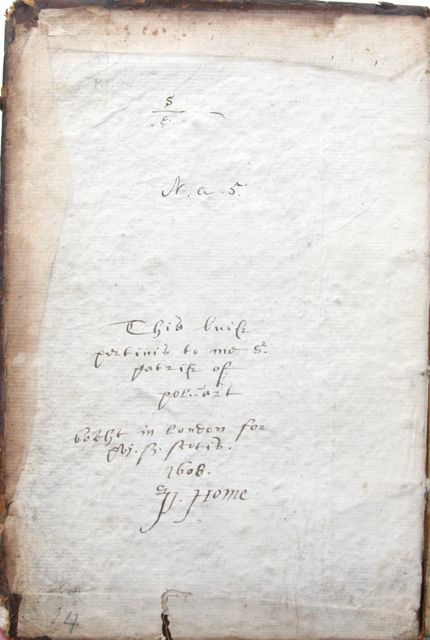 S
N. a. 5.
This buik
pertinis to me S.
patrik of
polwart
bocht in london for
scotis.
1608.
P. Home
14